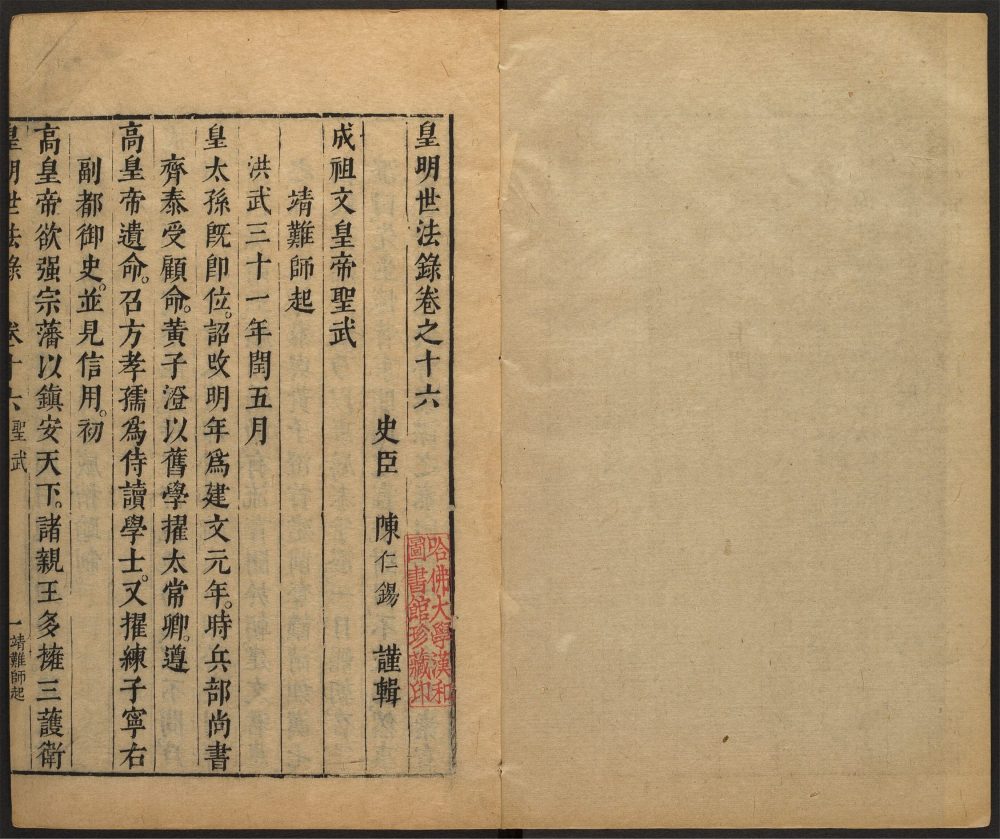 皇明世法錄卷之十六
史臣 陳仁錫 謹輯
成祖文皇帝聖武
靖難師起
洪武三十一年閏五月
皇太孫旣卽位。詔改明年爲建文元年。時兵部尚書
齊泰受顧命。黃子澄以舊學擢太常卿。遵
高皇帝遺命。召方孝孺爲侍讀學士。又擢練子寧右
副都御史。並見信用。初
高皇帝欲强宗藩以鎮安天下。諸親王多擁三護衛
皇明世法錄 卷十六 聖武 一 靖難師起
哈佛大學漢和
圖書館珍藏印